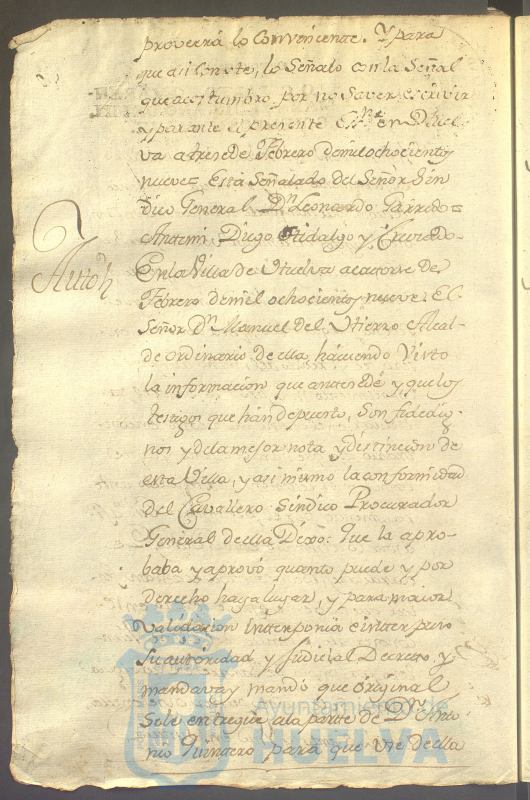 proveerá lo Convenciente. Y para
que asi Conste, lo Señalo con la Señal
que acostumbro por no Saver escrivir
y por ante el presente Essno en Huel-
va a trese de Febrero de mil ochocientos
nueve = Está Señalado del Señor Sin
dico General = Dn Leonardo Garrido =
Antemi, Diego Hidalgo y Cruzado =
Auto
En la Villa de Huelva a catorse de
Febrero de mil ochocientos nueve: El
Señor Dn Manuel del Hierro Alcal-
de ordinario de ella, haviendo Visto
la informacion que antecede y que los
testigos que han depuesto, Son fidedig-
nos y de la mejor nota y distincion de
esta Villa, y asi mismo la conformidad
del Cavallero Sindico Procurador
General de ella Dixo: Que la apro-
baba y aprovó quanto puede y por
derecho haya lugar, y para maior
Validacion interponia e interpuso
Su autoridad y Judicial Decreto, y
mandava y mandó que original
Se le entregue a la parte de Dn Anto
nio Quintero para que use de ella
Ayuntamiento de
HUELVA